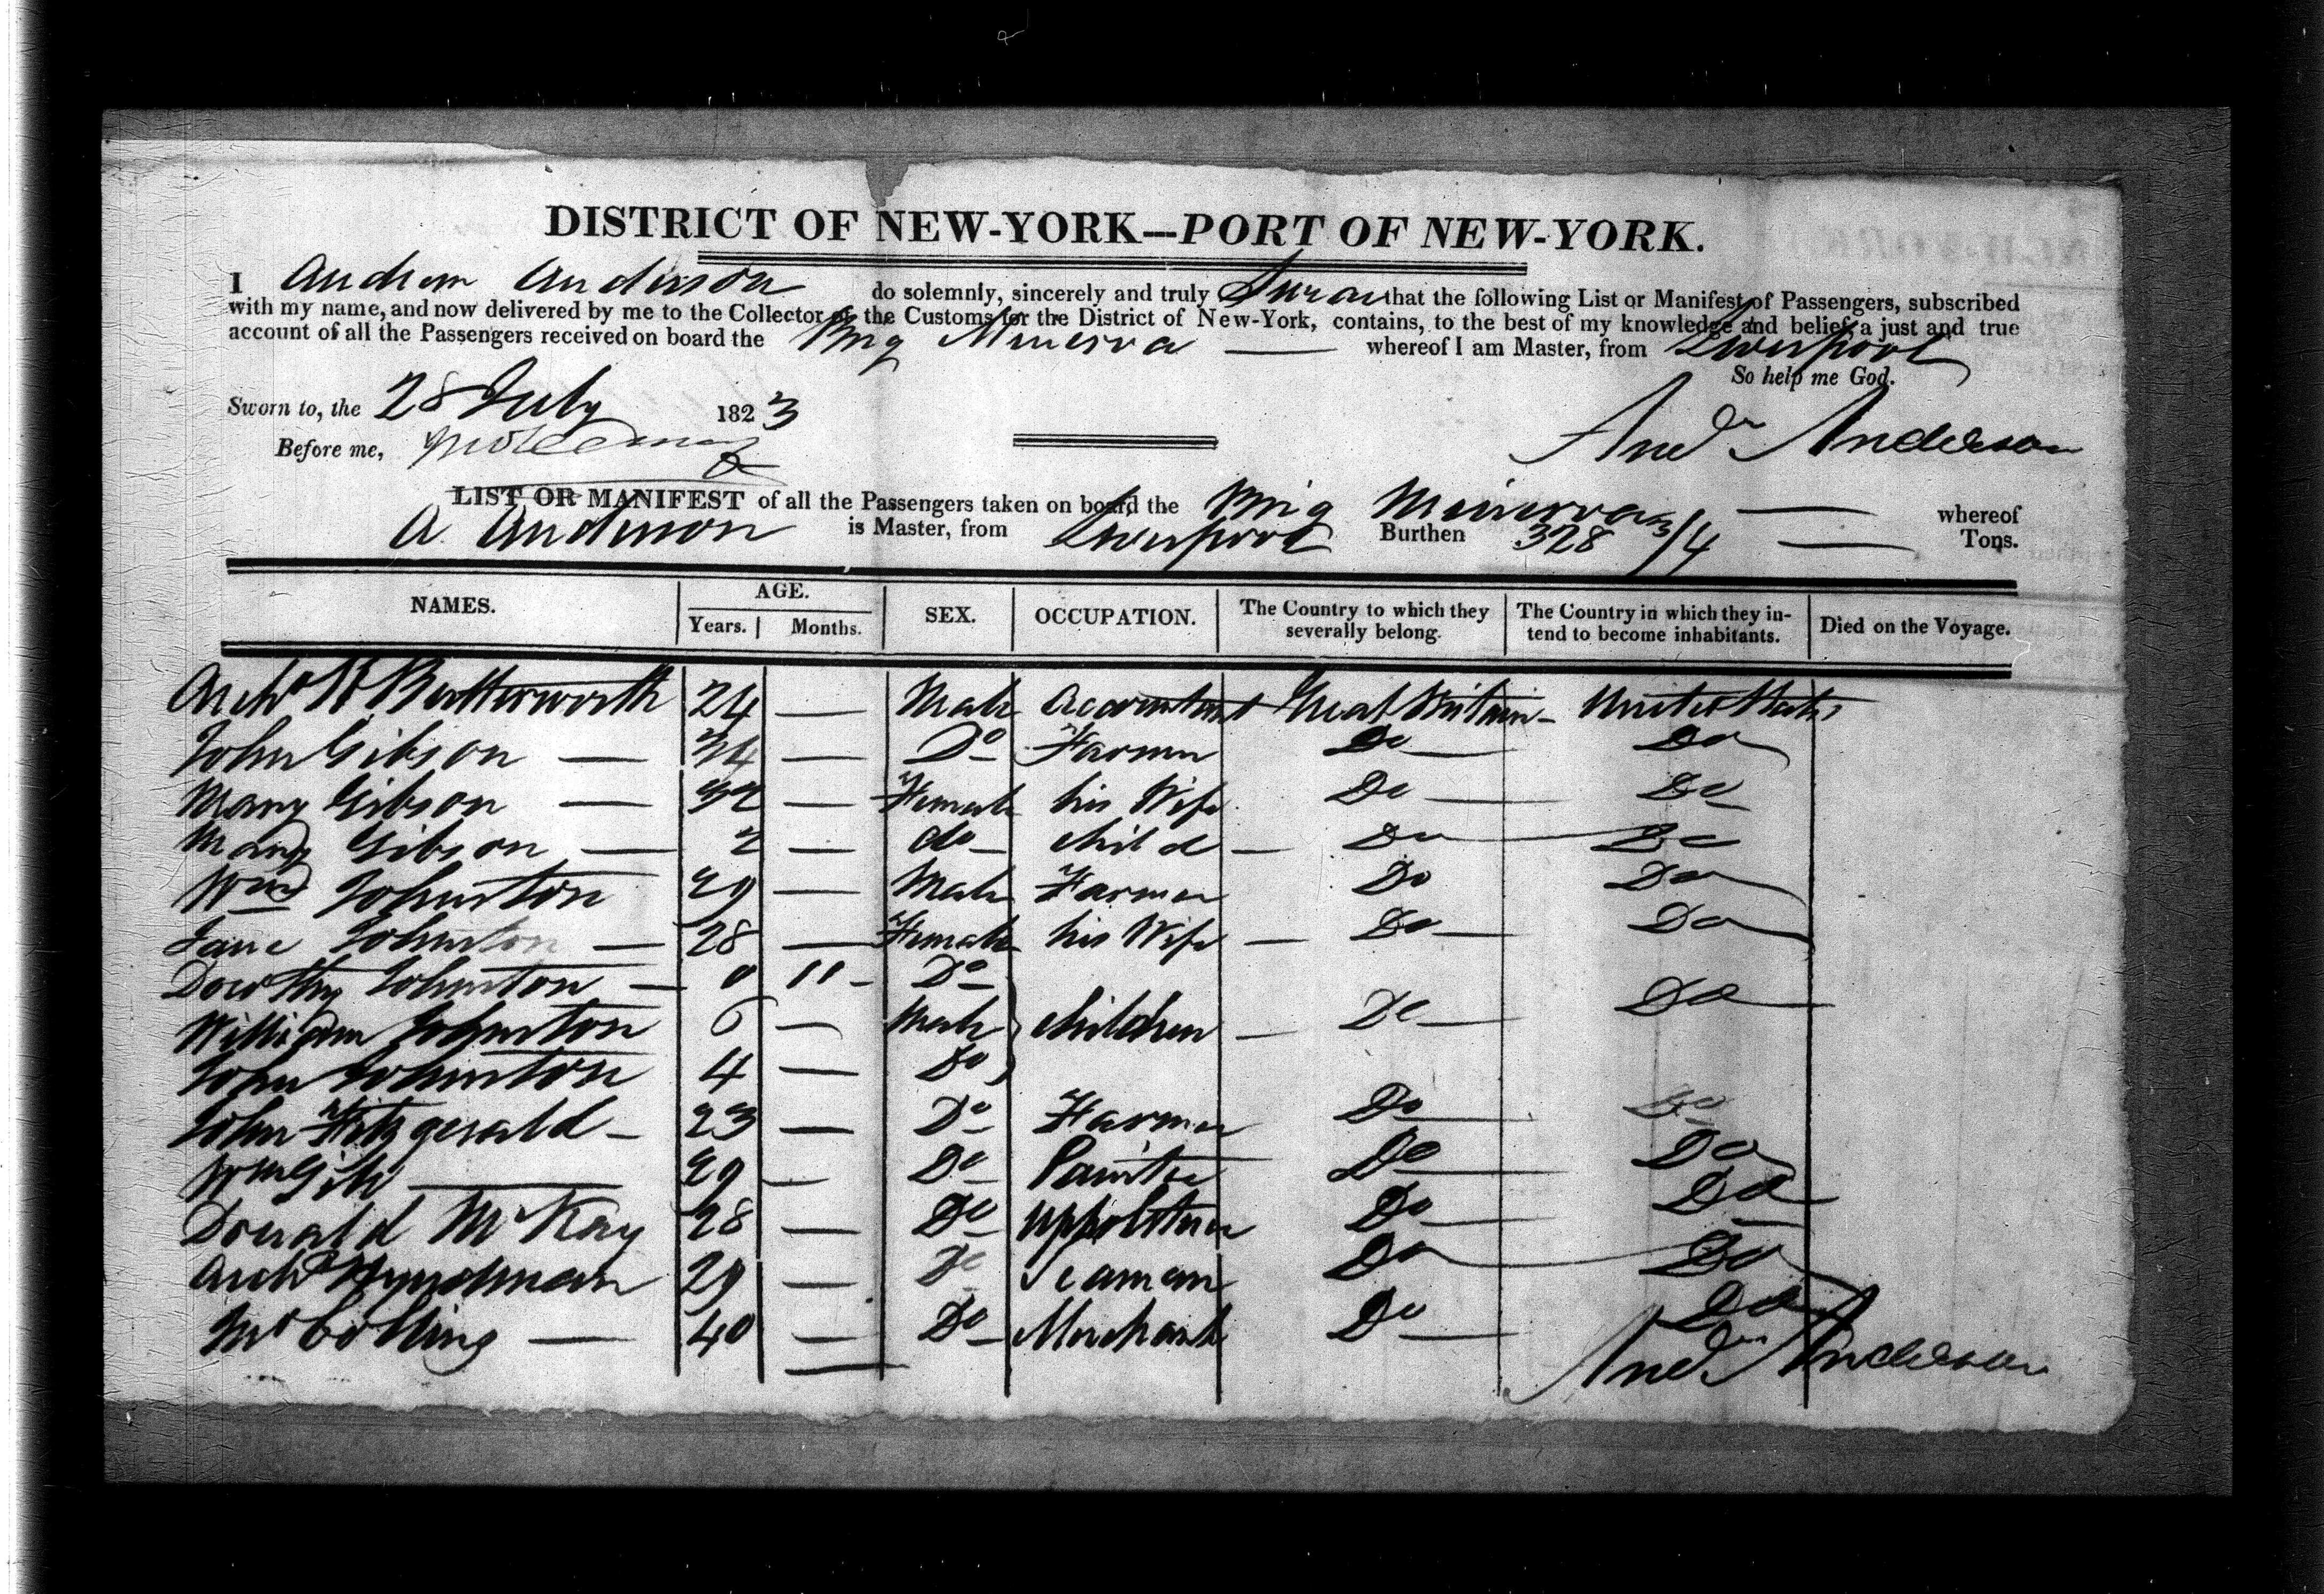 DISTRICT OF NEW-YORK—PORT OF NEW-YORK.
I Andrew Anderson do solemnly, sincerely and truly Swear that the following List or Manifest of Passengers, subscribed
with my name, and now delivered by me to the Collector of the Customs for the District of New-York, contains, to the best of my knowledge and belief, a just and true
account of all the Passengers received on board the Brig Minerva — whereof I am Master, from Liverpool
So help me God.
Sworn to, the 28 July 1823
Before me,
Andw Anderson
LIST OR MANIFEST of all the Passengers taken on board the Brig Minerva — whereof
A Anderson is Master, from Liverpool Burthen 328 3/4 — Tons.
NAMES. AGE. SEX. OCCUPATION. The Country to which they severally belong. The Country in which they intend to become inhabitants. Died on the Voyage.
Years. Months.
Archd Butterworth 24 — Male Accountant Great Britain — United States
John Gibson — 34 — Do Farmer Do — Do
Mary Gibson — 32 — Female his Wife Do — Do
Mary Gibson — 2 — do child — Do — Do
Wm Johnston 29 — Male Farmer Do Do
Jane Johnston — 28 — Female his Wife — Do — Do
Dorothy Johnston — 0 11 - Do
William Johnston 6 — Male children — Do — Do
John Johnston 4 — Do
John Fitzgerald - 23 — Do Farmer Do — Do
Wm Gill — 29 — Do Painter Do — Do
Donald McKay 28 — Do Upholsterer Do — Do
Archd Hyndman 29 — Do Seaman Do — Do
Jno Colling — 40 — Do Merchant Do — Do
Andw Anderson